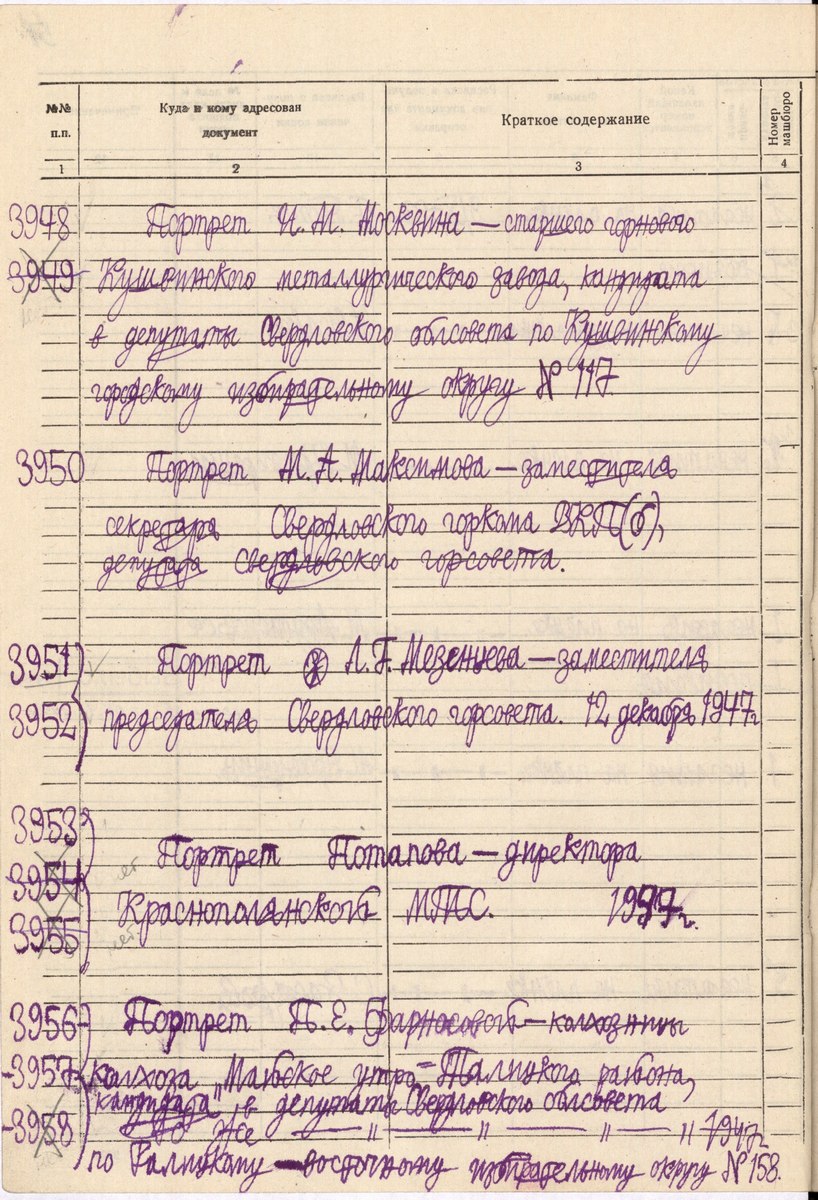 №№ п.п. Куда и кому адресован документ Краткое содержание Номер машбюро
1 2 3 4
3948 Портрет И. М. Москвина — старшего горнового
3949 Кушвинского металлургического завода, кандидата
в депутаты Свердловского облсовета по Кушвинскому
городскому избирательному округу № 117.
3950 Портрет М. А. Максимова — заместителя
секретаря Свердловского горкома ВКП(б),
депутата свердловского горсовета.
3951 Портрет Л. Г. Мезенцева — заместителя
3952 председателя Свердловского горсовета. 12 декабря 1947 г.
3953
Портрет Потапова — директора
3954 нет
Краснополянской МТС. 1947 г.
3955 нет
3956 Портрет П. Е. Фарносовой — колхозницы
3957 колхоза "Майское утро" Талицкого района,
кандидата в депутаты Свердловского облсовета
3958 То же — " — " — " — " 1947 г.
по Талицкому — восточному избирательному округу № 158.